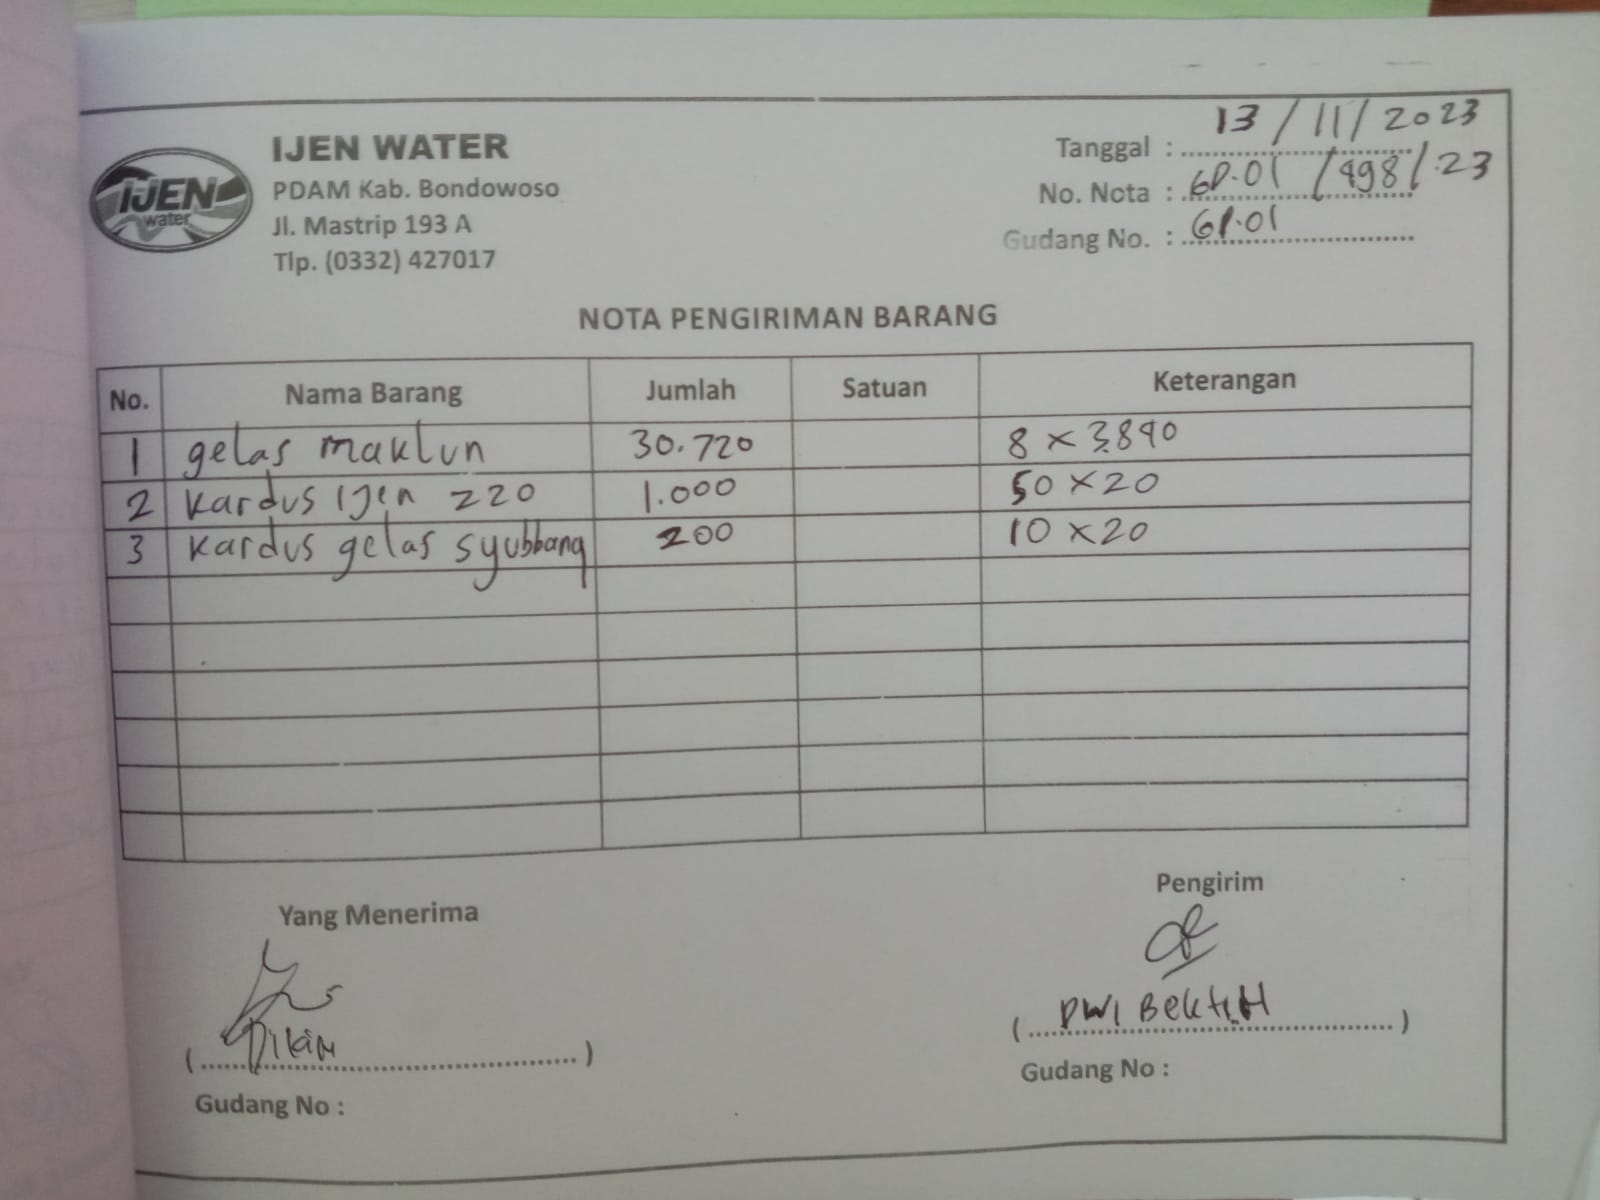 IJEN
water
IJEN WATER
PDAM Kab. Bondowoso
Jl. Mastrip 193 A
Tlp. (0332) 427017
Tanggal : 13/11/2023
No. Nota : GP.01/498/.23
Gudang No. : GP.01
NOTA PENGIRIMAN BARANG
No. Nama Barang Jumlah Satuan Keterangan
1 gelas maklun 30.720 8 x 3.840
2 kardus ijen 220 1.000 50 x 20
3 kardus gelas syubbang 200 10 x 20
Yang Menerima
Pengirim
( ) 
( DWI Bekti.H )
Gudang No :
Gudang No :